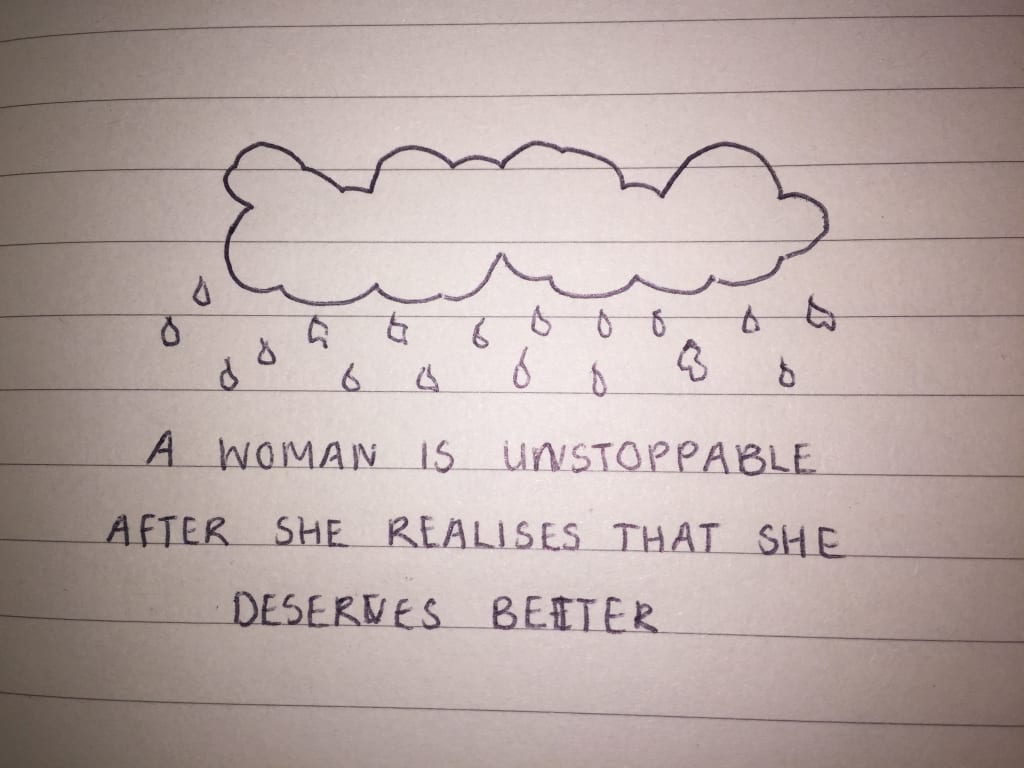 A WOMAN IS UNSTOPPABLE
AFTER SHE REALISES THAT SHE
DESERVES BETTER